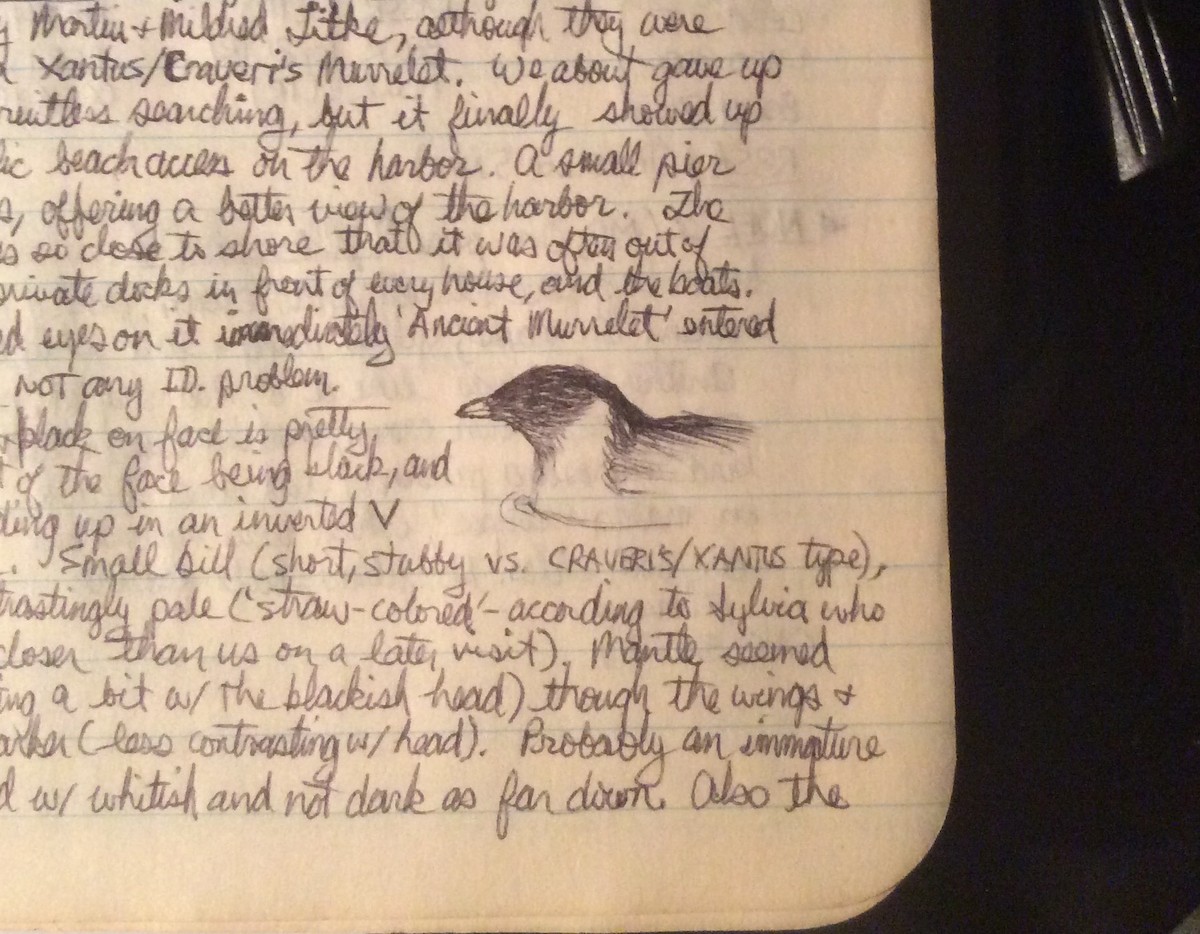 y Martin + Mildred Litke, although they were
Xantus/Craveri's Murrelet. We about gave up
ruitless searching, but it finally showed up
lic beach access on the harbor. A small pier
s, offering a better view of the harbor. The
s so close to shore that it was often out of
private docks in front of every house, and the boats.
ed eyes on it immediately 'Ancient Murrelet' entered
NOT any ID. problem.
black on face is pretty
t of the face being black, and
ding up in an inverted V
. Small bill (short, stubby vs. CRAVERI'S/XANTUS type),
trastingly pale ('straw-colored' - according to Sylvia who
closer than us on a later visit). Mantle seemed
ing a bit w/ the blackish head) though the wings +
arker (less contrasting w/ head). Probably an immature
d w/ whitish and not dark as far down. Also the